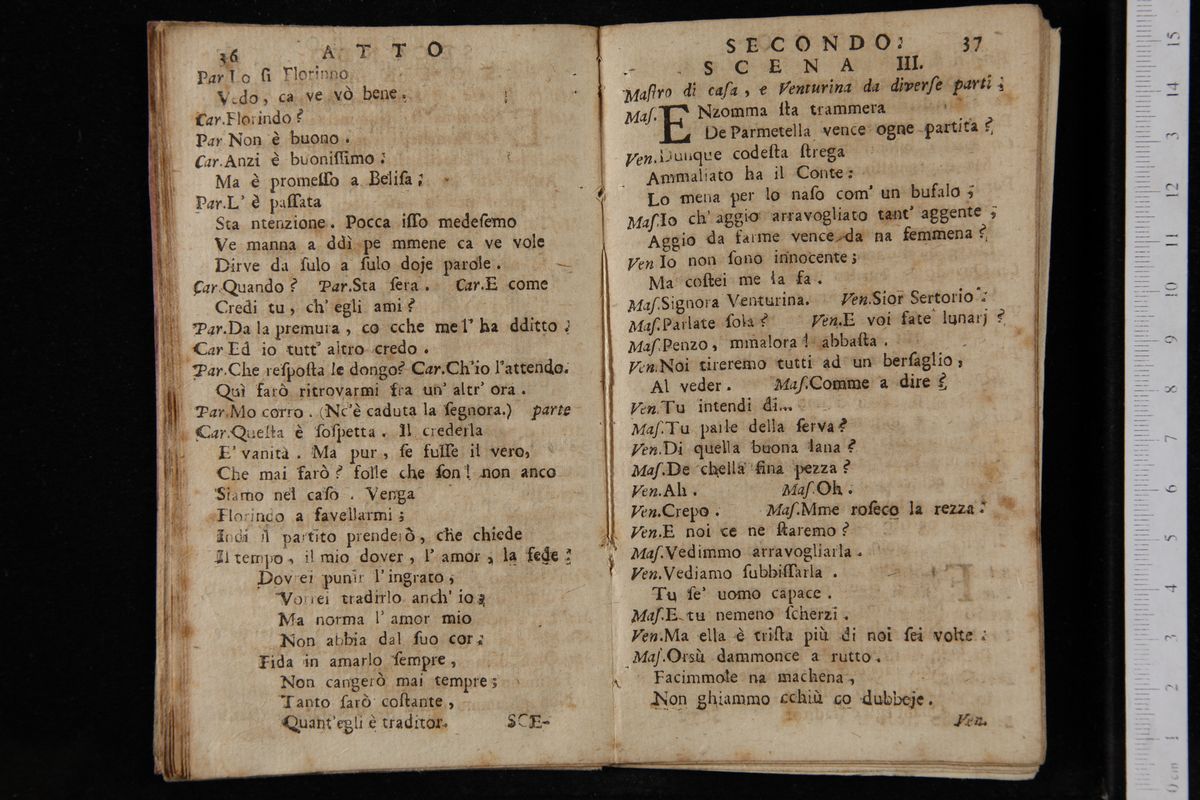 36 ATTO
Par Lo si Florinno
Vedo, ca ve vò bene.
Car.Florindo?
Par Non è buono.
Car.Anzi è buoniſſimo:
Ma è promeſſo a Beliſa;
Par.L' è paſſata
Sta ntenzione. Pocca iſſo medeſemo
Ve manna a ddì pe mmene ca ve vole
Dirve da ſulo a ſulo doje parole.
Car.Quando? Par.Sta ſera. Car.E come
Credi tu, ch' egli ami?
Par.Da la premura, co cche me l' ha dditto;
Car Ed io tutt' altro credo.
Par.Che reſpoſta le dongo? Car.Ch'io l'attendo.
Quì farò ritrovarmi fra un' altr' ora.
Par.Mo corro. (Nc'è caduta la ſegnora.) parte
Car.Queſta è ſoſpetta. Il crederla
E' vanità. Ma pur, ſe fuſſe il vero,
Che mai farò? folle che ſon! non anco
Siamo nel caſo. Venga
Florindo a favellarmi;
Indi il partito prenderò, che chiede
Il tempo, il mio dover, l' amor, la fede:
Dovrei punir l' ingrato,
Vorrei tradirlo anch' io;
Ma norma l' amor mio
Non abbia dal ſuo cor:
Fida in amarlo ſempre,
Non cangerò mai tempre;
Tanto ſarò coſtante,
Quant'egli è traditor.
SCE-
SECONDO: 37
SCENA III.
Maſtro di caſa, e Venturina da diverſe parti;
Maſ. ENzomma ſta trammera
De Parmetella vence ogne partita?
Ven.Dunque codeſta ſtrega
Ammaliato ha il Conte:
Lo mena per lo naſo com' un bufalo;
Maſ.Io ch' aggio arravogliato tant' aggente;
Aggio da farme vence da na femmena?
Ven Io non ſono innocente;
Ma coſtei me la fa.
Maſ.Signora Venturina. Ven.Sior Sertorio:
Maſ.Parlate ſola? Ven.E voi fate lunarj?
Maſ.Penzo, mmalora! abbaſta.
Ven.Noi tireremo tutti ad un berſaglio,
Al veder. Maſ.Comme a dire?
Ven.Tu intendi di...
Maſ.Tu parle della ſerva?
Ven.Di quella buona lana?
Maſ.De chella fina pezza?
Ven.Ah. Maſ.Oh.
Ven.Crepo. Maſ.Mme roſeco la rezza:
Ven.E noi ce ne ſtaremo?
Maſ.Vedimmo arravogliarla.
Ven.Vediamo ſubbiſſarla.
Tu ſe' uomo capace.
Maſ.E tu nemeno ſcherzi.
Ven.Ma ella è triſta più di noi ſei volte:
Maſ.Orsù dammonce a rutto.
Facimmole na machena,
Non ghiammo cchiù co dubbeje.
Ven.